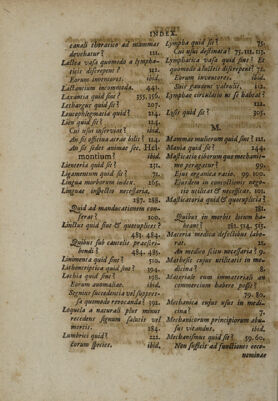 INDEX.
canali thoracico ad mammas
devehatur? 111.
Lactea vasa quomodo a lympha-
ticis discrepent? 121.
Eorum inventores. ibid.
Lactantium incommoda. 441.
Laxantia quid sint? 355. 356.
Lethargus quid sit? 207.
Leucophlegmatia quid? 214.
Lien quid sit? 114.
Cui usui inserviat? ibid.
An sit officina atræ bilis? 114.
An sit sedes animæ sec. Hel-
montium? ibid.
Lienteria quid sit? 221.
Ligamentum quid sit? 71.
Lingua morborum index. 105.
Linguæ inspectio necessaria.
287. 288.
Quid ad manducationem con-
ferat? 100.
Linctus quid sint & quotuplices?
483. 484.
Quibus sub cautelis præscri-
bendi? 484. 485.
Linimenta quid sint? 510.
Lithontriptica quid sint? 394.
Lochia quid sint? 158.
Eorum anomaliæ. ibid.
Segnius succedentia vel suppres-
sa quomodo revocanda? 392.
Loquela a naturali plus minus
recedens signum salutis vel
mortis. 284.
Lumbrici quid? 221.
Eorum species. ibid.
Lympha quid sit? 75.
Cui usui destinata? 75. 111. 113.
Lymphatica vasa quid sint? Et
quomodo a lacteis discrepent? 71.
Eorum inventores. ibid.
Sint gaudent valvulis. 112.
Lymphæ circulatio ut se habeat?
112.
Lysis quid sit? 305.
M.
Mammæ mulierum quid sint? 111.
Mania quid sit? 244.
Masticatio ciborum quo mechanis-
mo peragatur? 99.
Ejus organica ratio. 99. 100.
Ejusdem in concilianda nego-
tio utilitas & necessitas. 101.
Masticatoria quid & quotuplicia?
181.
Quibus in morbis locum ha-
beant? 181. 514. 515.
Materia medica defectibus labo-
rat. 21.
An medico scitu necessaria? 9.
Mathesis cujus utilitatis in me-
dicina? 8.
Materiale cum immateriali an
commercium habere possit?
79. 80.
Mechanica cujus usus in medi-
cina? 7.
Mechanicorum principiorum abu-
sus vitandus. ibid.
Mechanismus quid sit? 59. 60.
Non sufficit ad functiones œco-
nomiæ